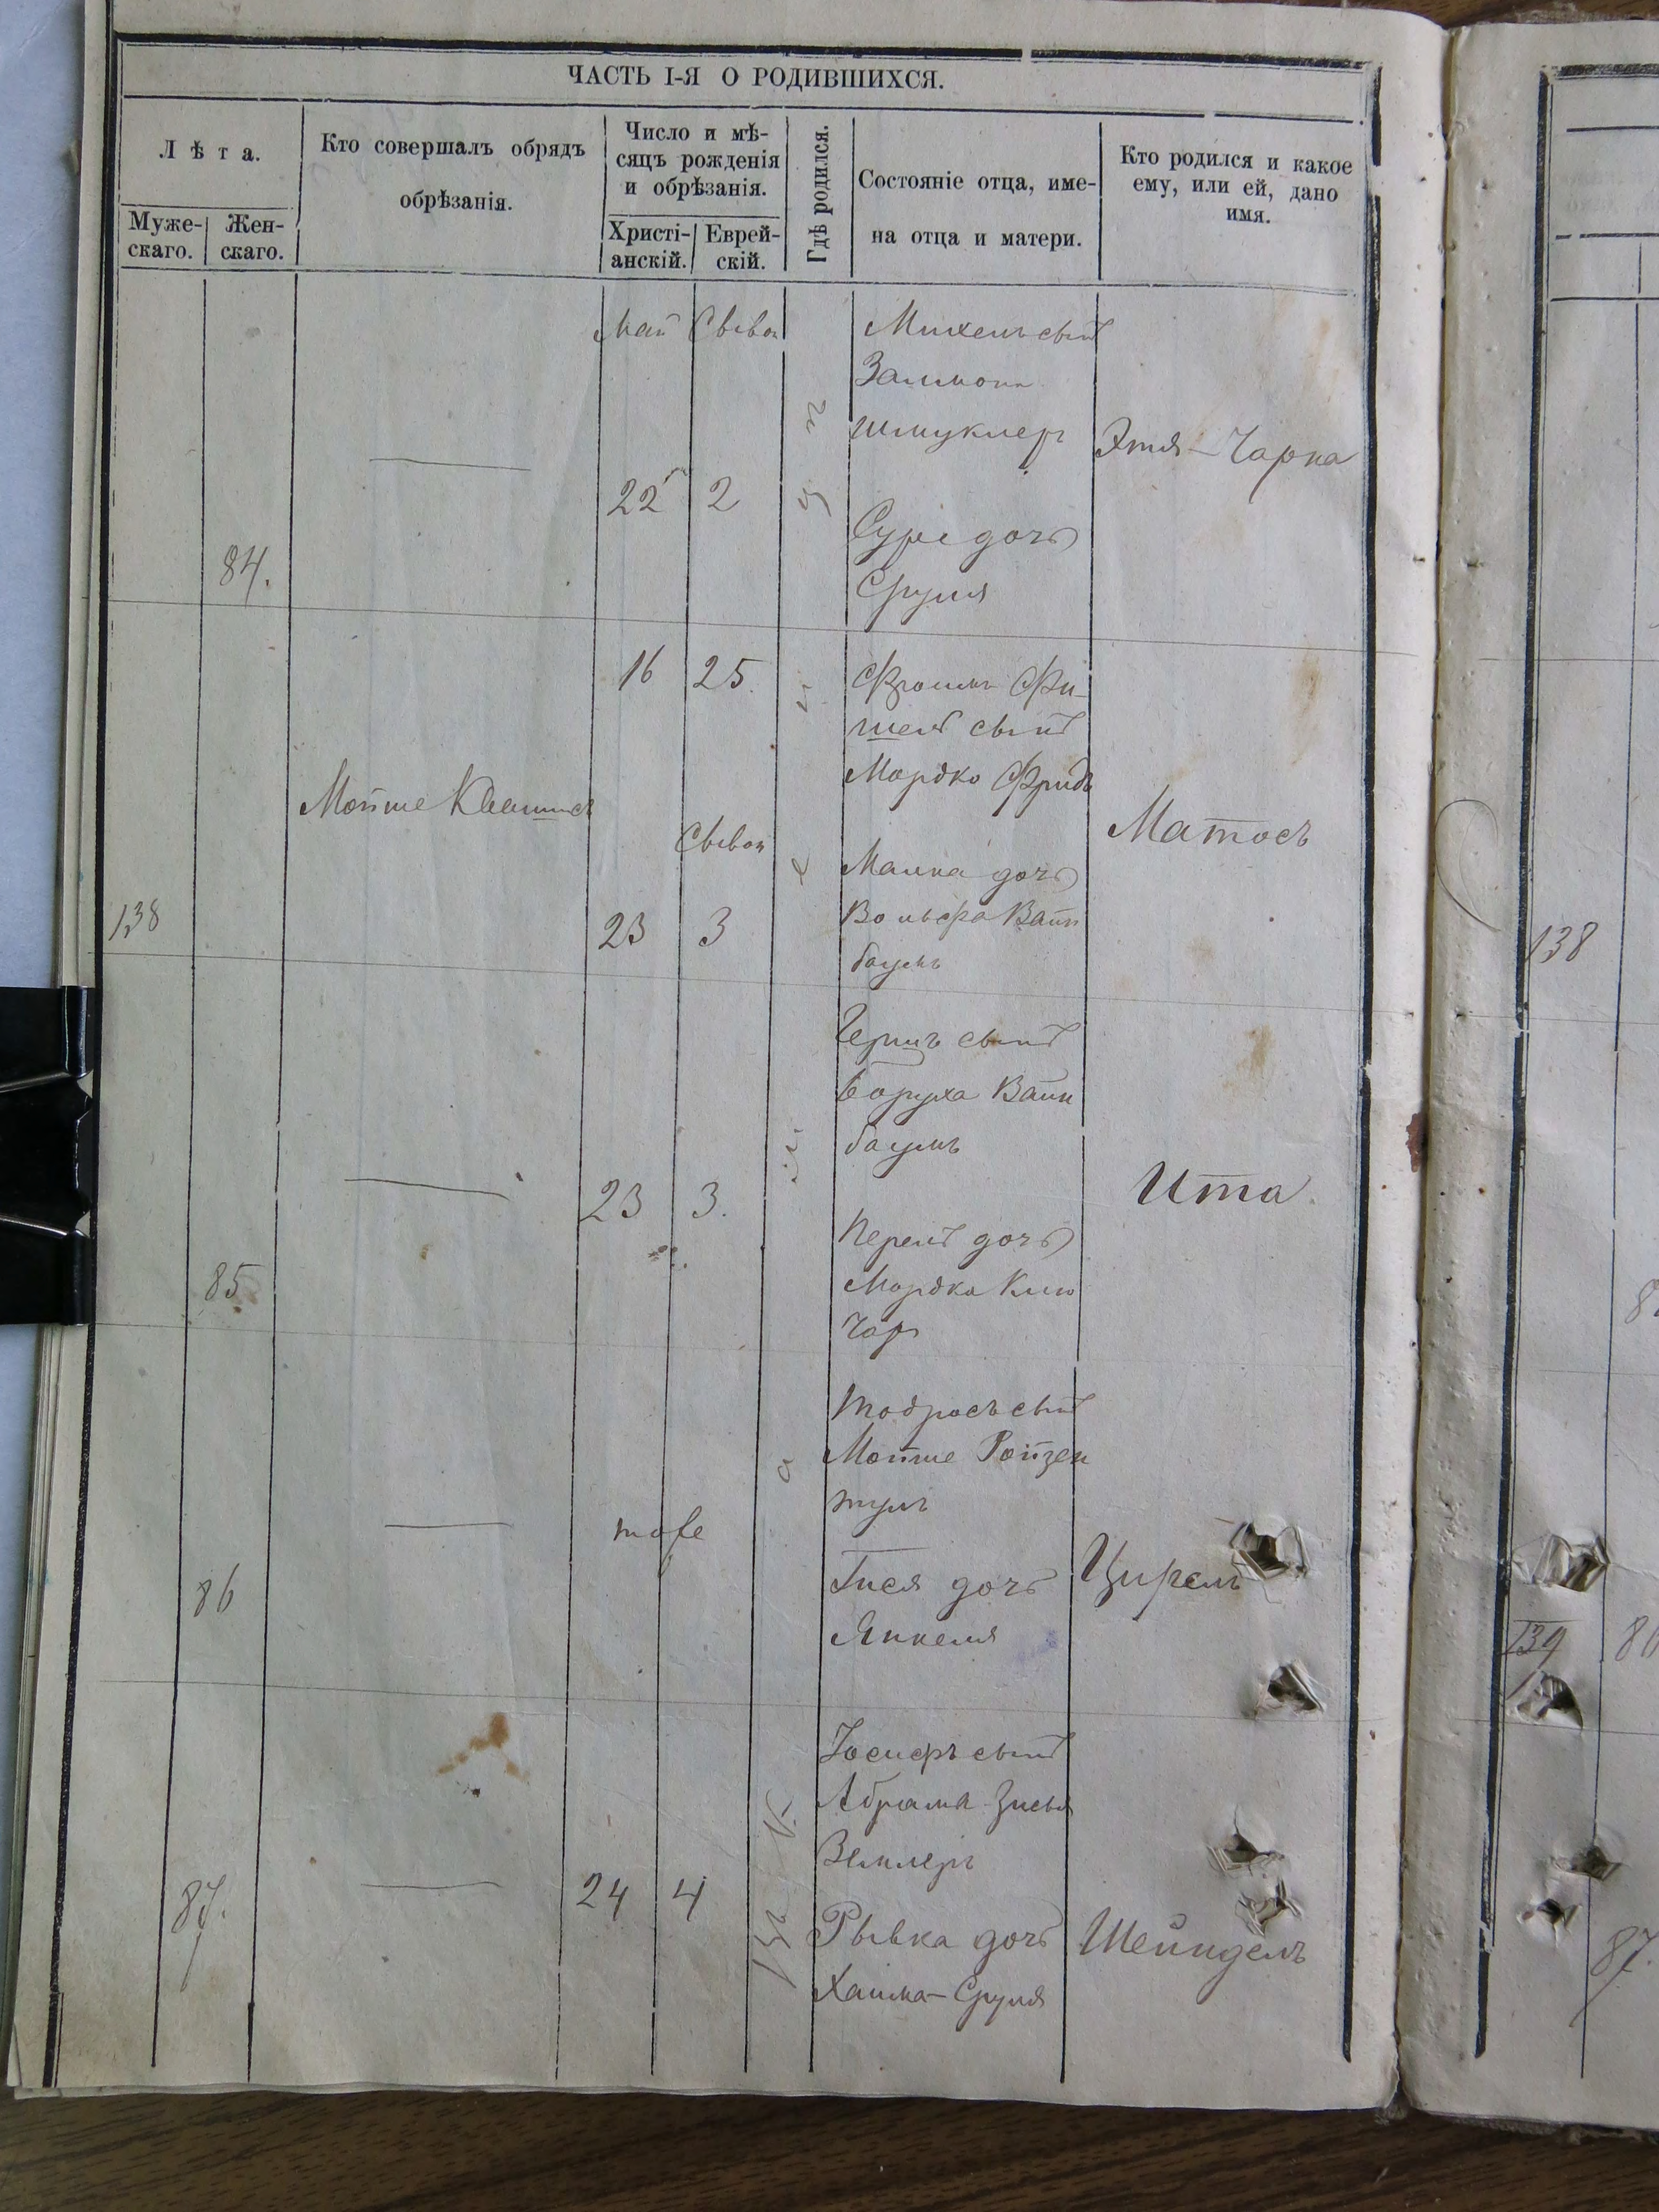 ЧАСТЬ I-Я О РОДИВШИХСЯ.
Лѣта.
Муже-
скаго.
Жен-
скаго.
Кто совершалъ обрядъ
обрѣзанія.
Число и мѣ-
сяцъ рожденія
и обрѣзанія.
Христі-
анскій.
Еврей-
скій.
Гдѣ родился.
Состояніе отца, име-
на отца и матери.
Кто родился и какое
ему, или ей, дано
имя.
84.
Май Сывон
22 2
Михель сынъ
Залмона
Шмуклер
Суре дочь
Сруля
Этля-Чарна
138
Мойше
16 25.
Сывон
23 3
Фроимъ Фи-
шель сынъ
Мордко Фридъ
Малка дочь
Вольфа Вайн
баумъ
Матосъ
138
85
23 3.
Гершъ сынъ
Боруха Вайн
баумъ
Перель дочь
Мордка Клю
чар
Ита.
86
тоже
Тодросъ сынъ
Мойше Ройзен
тулъ
Гися дочь
Янкеля
Цирель
139
87.
24 4
Іосифъ сынъ
Абрама Зисья
Земллеръ
Рывка дочь
Хаима-Сруля
Шейндель
87.